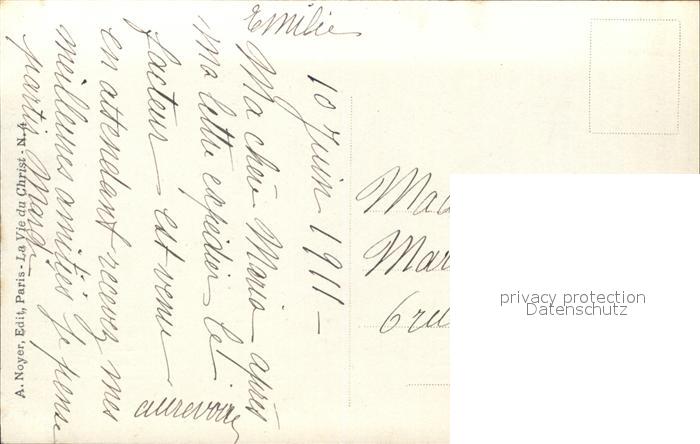 10 Juin 1911 –
Ma chère Maria après
ma lettre expedier le
facteur est venu
en attendant recevez mes
meilleures amitiés Je pense
partir Mardi
aurevoir
Emilie
Mad
Mar
6 rue
A. Noyer, Edit, Paris - La Vie du Christ - N. 4
privacy protection
Datenschutz